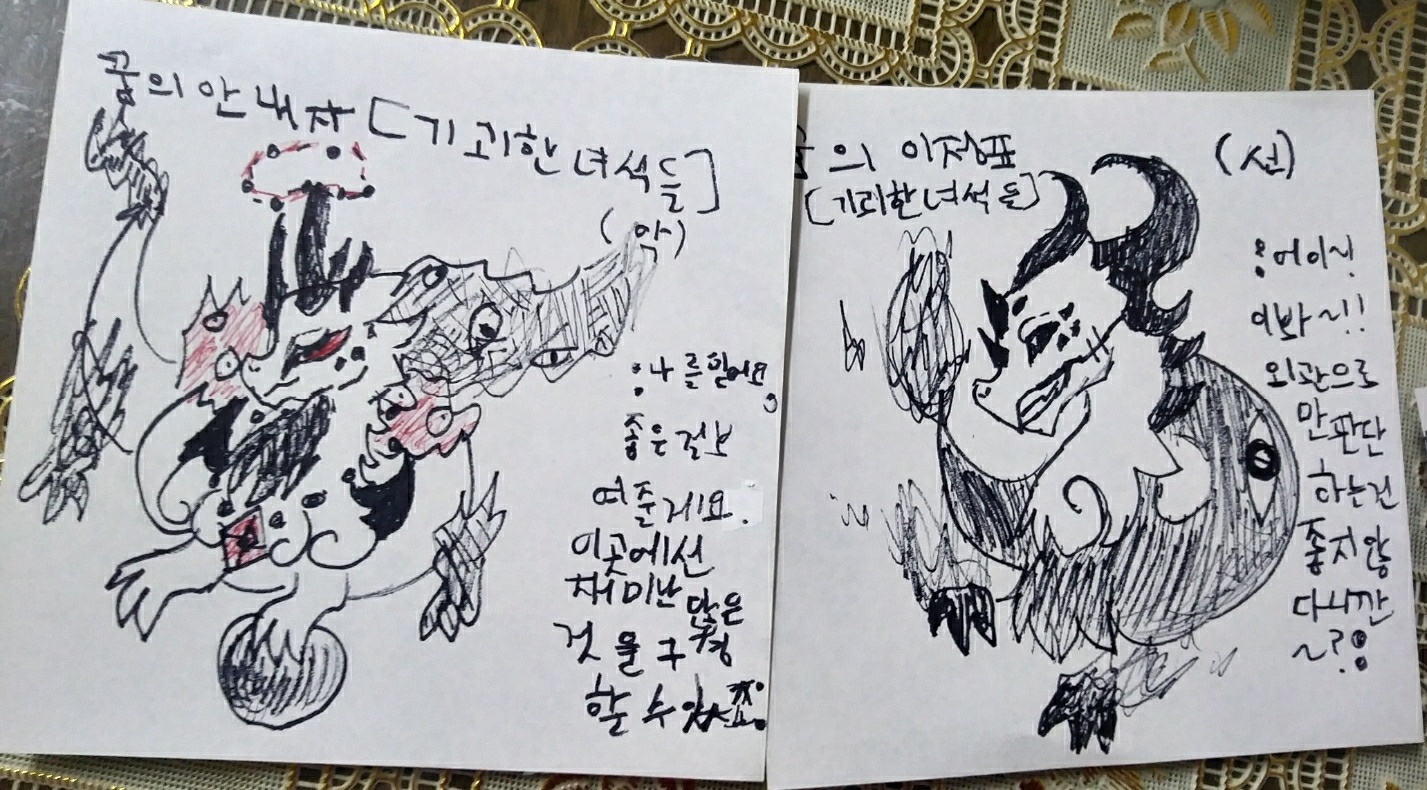 꿈의 안내자 [기괴한 녀석들]
(악)
:나를 믿어요
좋은 걸 보
여 줄게요.
이곳에선
재미난 많은
것을 구경
할 수 있죠:
의 이정표
(선)
[기괴한 녀석들]
:어이~!
이봐~!!
외관으로
만 판단
하는건
좋지 않
다니깐
~?: